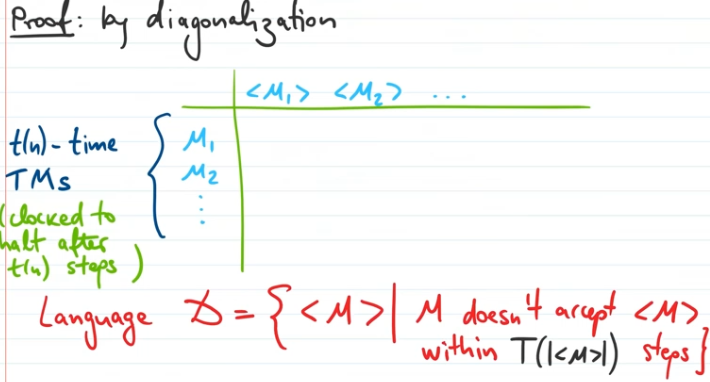 Proof: by diagonalization
<M₁> <M₂> ...
t(n)-time M₁
TMs M₂
(clocked to ⋮
halt after
t(n) steps)
Language D = { <M> | M doesn't accept <M>
within T(|<M>|) steps}